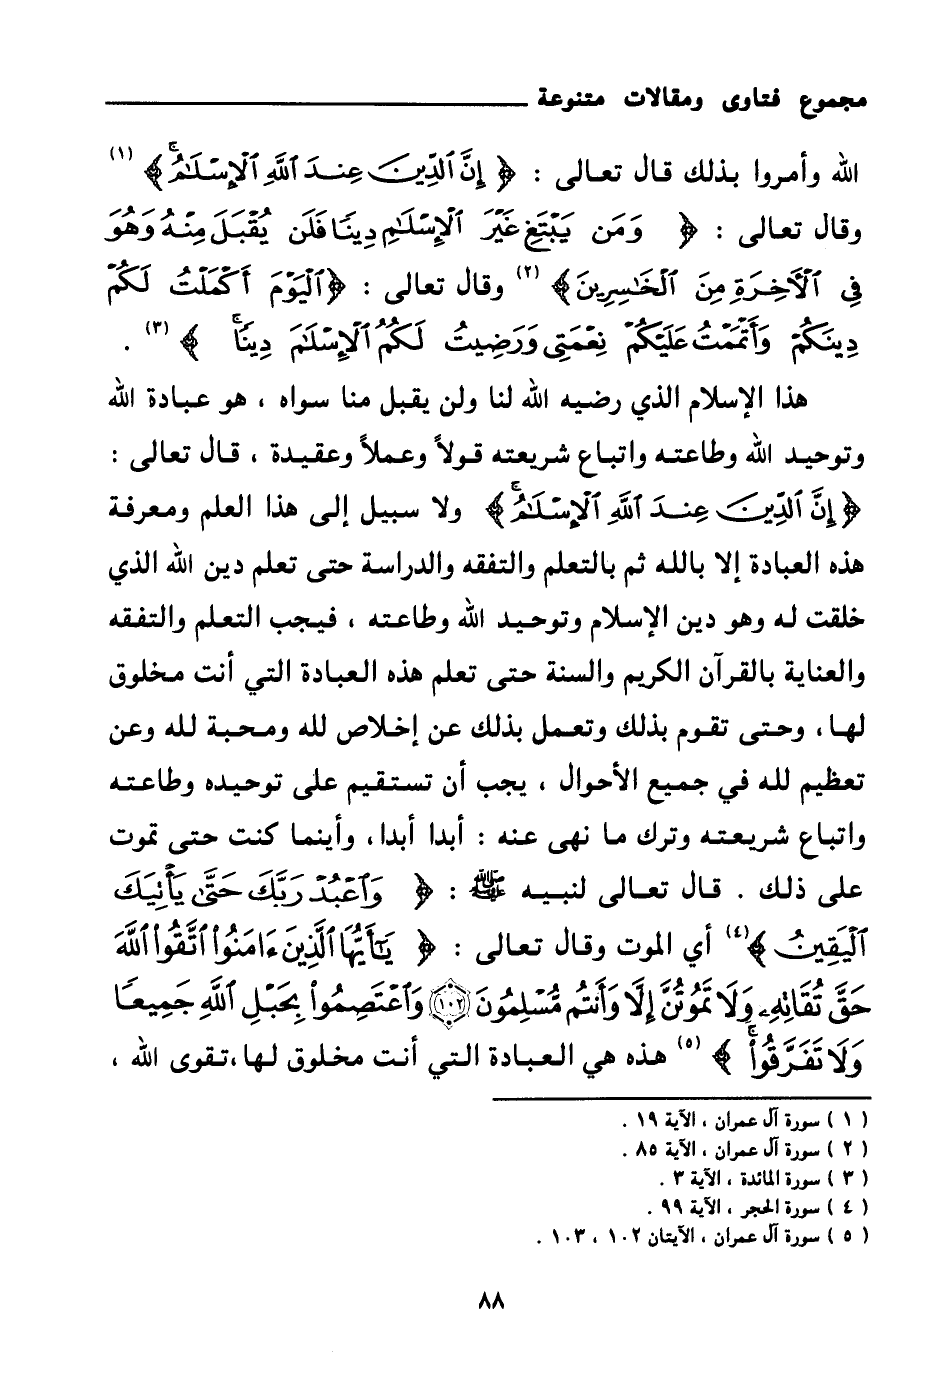 مجموع فتاوى ومقالات متنوعة
الله وأمروا بذلك قال تعالى : ﴿ إِنَّ ٱلدِّينَ عِندَ ٱللَّهِ ٱلْإِسْلَٰمُۗ ﴾ (١)
وقال تعالى : ﴿ وَمَن يَبْتَغِ غَيْرَ ٱلْإِسْلَٰمِ دِينًا فَلَن يُقْبَلَ مِنْهُ وَهُوَ
فِى ٱلْءَاخِرَةِ مِنَ ٱلْخَٰسِرِينَ ﴾ (٢) وقال تعالى : ﴿ ٱلْيَوْمَ أَكْمَلْتُ لَكُمْ
دِينَكُمْ وَأَتْمَمْتُ عَلَيْكُمْ نِعْمَتِى وَرَضِيتُ لَكُمُ ٱلْإِسْلَٰمَ دِينًاۚ ﴾ (٣) .
هذا الإسلام الذي رضيه الله لنا ولن يقبل منا سواه ، هو عبادة الله
وتوحيد الله وطاعته واتباع شريعته قولاً وعملاً وعقيدة ، قال تعالى :
﴿ إِنَّ ٱلدِّينَ عِندَ ٱللَّهِ ٱلْإِسْلَٰمُۗ ﴾ ولا سبيل إلى هذا العلم ومعرفة
هذه العبادة إلا بالله ثم بالتعلم والتفقه والدراسة حتى تعلم دين الله الذي
خلقت له وهو دين الإسلام وتوحيد الله وطاعته ، فيجب التعلم والتفقه
والعناية بالقرآن الكريم والسنة حتى تعلم هذه العبادة التي أنت مخلوق
لها، وحتى تقوم بذلك وتعمل بذلك عن إخلاص لله ومحبة لله وعن
تعظيم لله في جميع الأحوال ، يجب أن تستقيم على توحيده وطاعته
واتباع شريعته وترك ما نهى عنه : أبدا أبدا، وأينما كنت حتى تموت
على ذلك . قال تعالى لنبيه ﷺ : ﴿ وَٱعْبُدْ رَبَّكَ حَتَّىٰ يَأْتِيَكَ
ٱلْيَقِينُ ﴾(٤) أي الموت وقال تعالى : ﴿ يَٰٓأَيُّهَا ٱلَّذِينَ ءَامَنُوا۟ ٱتَّقُوا۟ ٱللَّهَ
حَقَّ تُقَاتِهِۦ وَلَا تَمُوتُنَّ إِلَّا وَأَنتُم مُّسْلِمُونَ ۝١٠٢ وَٱعْتَصِمُوا۟ بِحَبْلِ ٱللَّهِ جَمِيعًا
وَلَا تَفَرَّقُوا۟ۚ ﴾ (٥) هذه هي العبادة التي أنت مخلوق لها،تقوى الله ،
( ١ ) سورة آل عمران ، الآية ١٩ .
( ٢ ) سورة آل عمران ، الآية ٨٥ .
( ٣ ) سورة المائدة ، الآية ٣ .
( ٤ ) سورة الحجر ، الآية ٩٩ .
( ٥ ) سورة آل عمران ، الآيتان ١٠٢ ، ١٠٣ .
٨٨